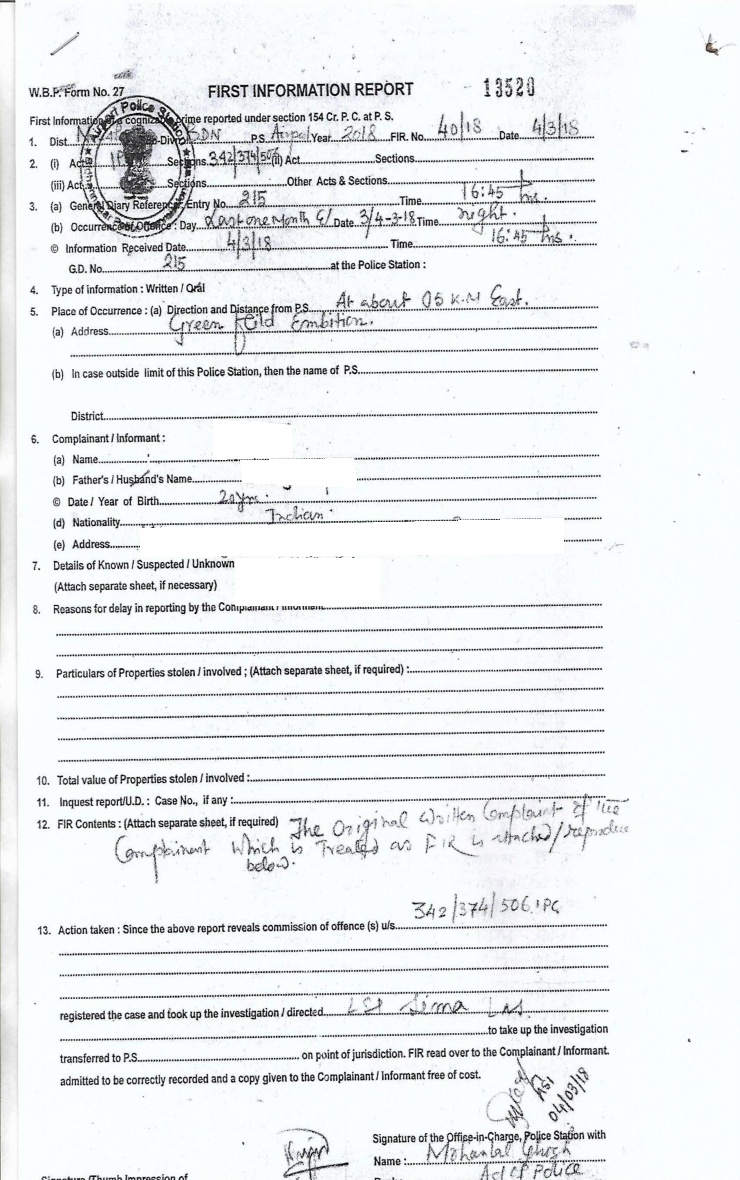 W.B.P. Form No. 27 FIRST INFORMATION REPORT 13520
First Information of a cognizable crime reported under section 154 Cr. P. C. at P. S.
1. Dist. Sub-Divn BDN P.S. Airport Year 2018 FIR. No. 40/18 Date 4/3/18
2. (i) Act IPC Sections 342/374/506 (ii) Act Sections
(iii) Act Sections Other Acts & Sections
3. (a) General Diary Reference: Entry No. 215 Time 16:45 hrs.
(b) Occurrence of Offence : Day Last one Month & Date 3/4-3-18 Time night.
© Information Received Date 4/3/18 Time 16:45 hrs.
G.D. No. 215 at the Police Station :
4. Type of information : Written / Oral
5. Place of Occurrence : (a) Direction and Distance from P.S. At about 05 K.M East.
(a) Address Green Field Embition.
(b) In case outside limit of this Police Station, then the name of P.S.
District
6. Complainant / Informant :
(a) Name
(b) Father's / Husband's Name
© Date / Year of Birth 20 yrs.
(d) Nationality Indian.
(e) Address
7. Details of Known / Suspected / Unknown
(Attach separate sheet, if necessary)
8. Reasons for delay in reporting by the Complainant / Informant
9. Particulars of Properties stolen / involved ; (Attach separate sheet, if required) :
10. Total value of Properties stolen / involved :
11. Inquest report/U.D. : Case No., if any :
12. FIR Contents : (Attach separate sheet, if required) The Original Written Complaint of the
Complainent Which is Treated as FIR is attached/reproduce
below.
342/374/506 IPC
13. Action taken : Since the above report reveals commission of offence (s) u/s
registered the case and took up the investigation / directed LSI Sima
to take up the investigation
transferred to P.S. on point of jurisdiction. FIR read over to the Complainant / Informant.
admitted to be correctly recorded and a copy given to the Complainant / Informant free of cost.
04/03/18
Signature of the Office-in-Charge, Police Station with
Name : Mohanlal Ghosh
of Police
Signature /Thumb Impression of